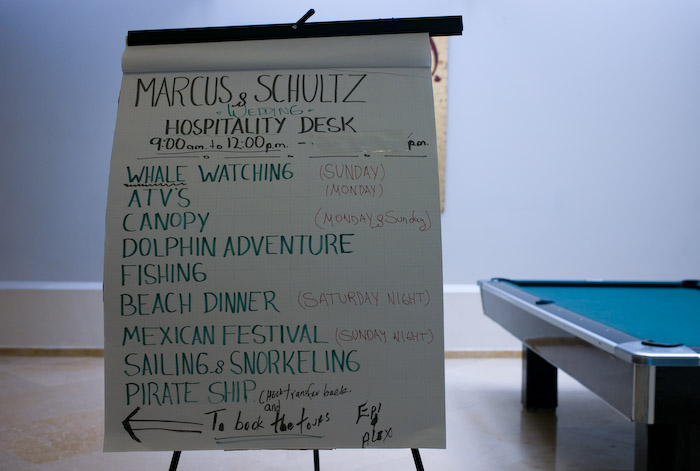 MARCUS & SCHULTZ
- WEDDING -
HOSPITALITY DESK
9:00 a.m. to 12:00 p.m. - p.m.
WHALE WATCHING (SUNDAY)
ATV'S (MONDAY)
CANOPY (MONDAY & Sunday)
DOLPHIN ADVENTURE
FISHING
BEACH DINNER (SATURDAY NIGHT)
MEXICAN FESTIVAL (SUNDAY NIGHT)
SAILING & SNORKELING
PIRATE SHIP
and
To book the tours
EPI
& ALEX